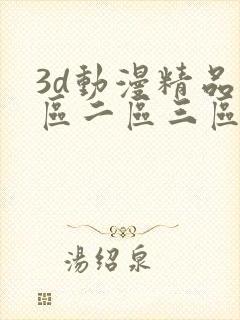 3d動漫精品
區二區三區
湯紹泉